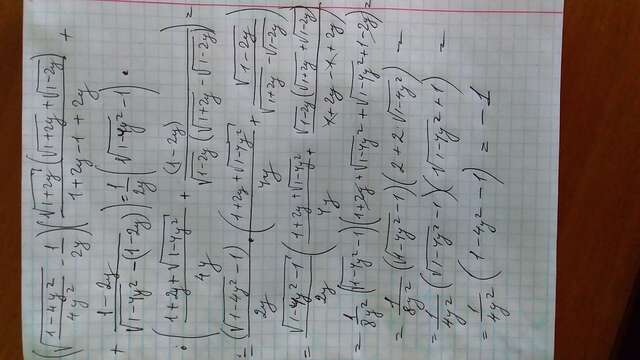 (√((1-4y²)/(4y²)) - 1/(2y)) (√(1+2y)(√(1+2y)+√(1-2y))/(1+2y-1+2y) +
+ (1-2y)/(√(1-4y²)-(1-2y))) = 1/(2y) (√(1-4y²)-1) ·
· ((1+2y+√(1-4y²))/(4y) + (1-2y)/(√(1-2y)(√(1+2y)-√(1-2y)))) =
= (√(1-4y²)-1)/(2y) · ((1+2y+√(1-4y²))/(4y) + √(1-2y)/(√(1+2y)-√(1-2y)))
= (√(1-4y²)-1)/(2y) ((1+2y+√(1-4y²))/(4y) + √(1-2y)(√(1+2y)+√(1-2y))/(1+2y-1+2y))
= 1/(8y²) (√(1-4y²)-1)(1+2y+√(1-4y²)+√(1-4y²)+1-2y) =
= 1/(8y²) (√(1-4y²)-1)(2+2·√(1-4y²)) =
= 1/(4y²) (√(1-4y²)-1)(√(1-4y²)+1) =
= 1/(4y²) (1-4y²-1) = -1